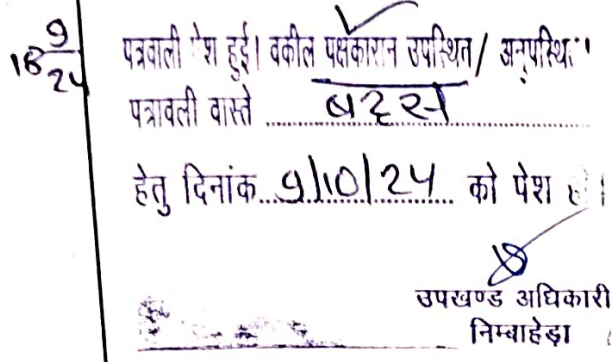 18 9/24
पत्रवाली पेश हुई। वकील पक्षकारान उपस्थित/ अनुपस्थित
पत्रावली वास्ते ..... बहस .....
हेतु दिनांक...9/10/24... को पेश हो।
उपखण्ड अधिकारी
निम्बाहेड़ा